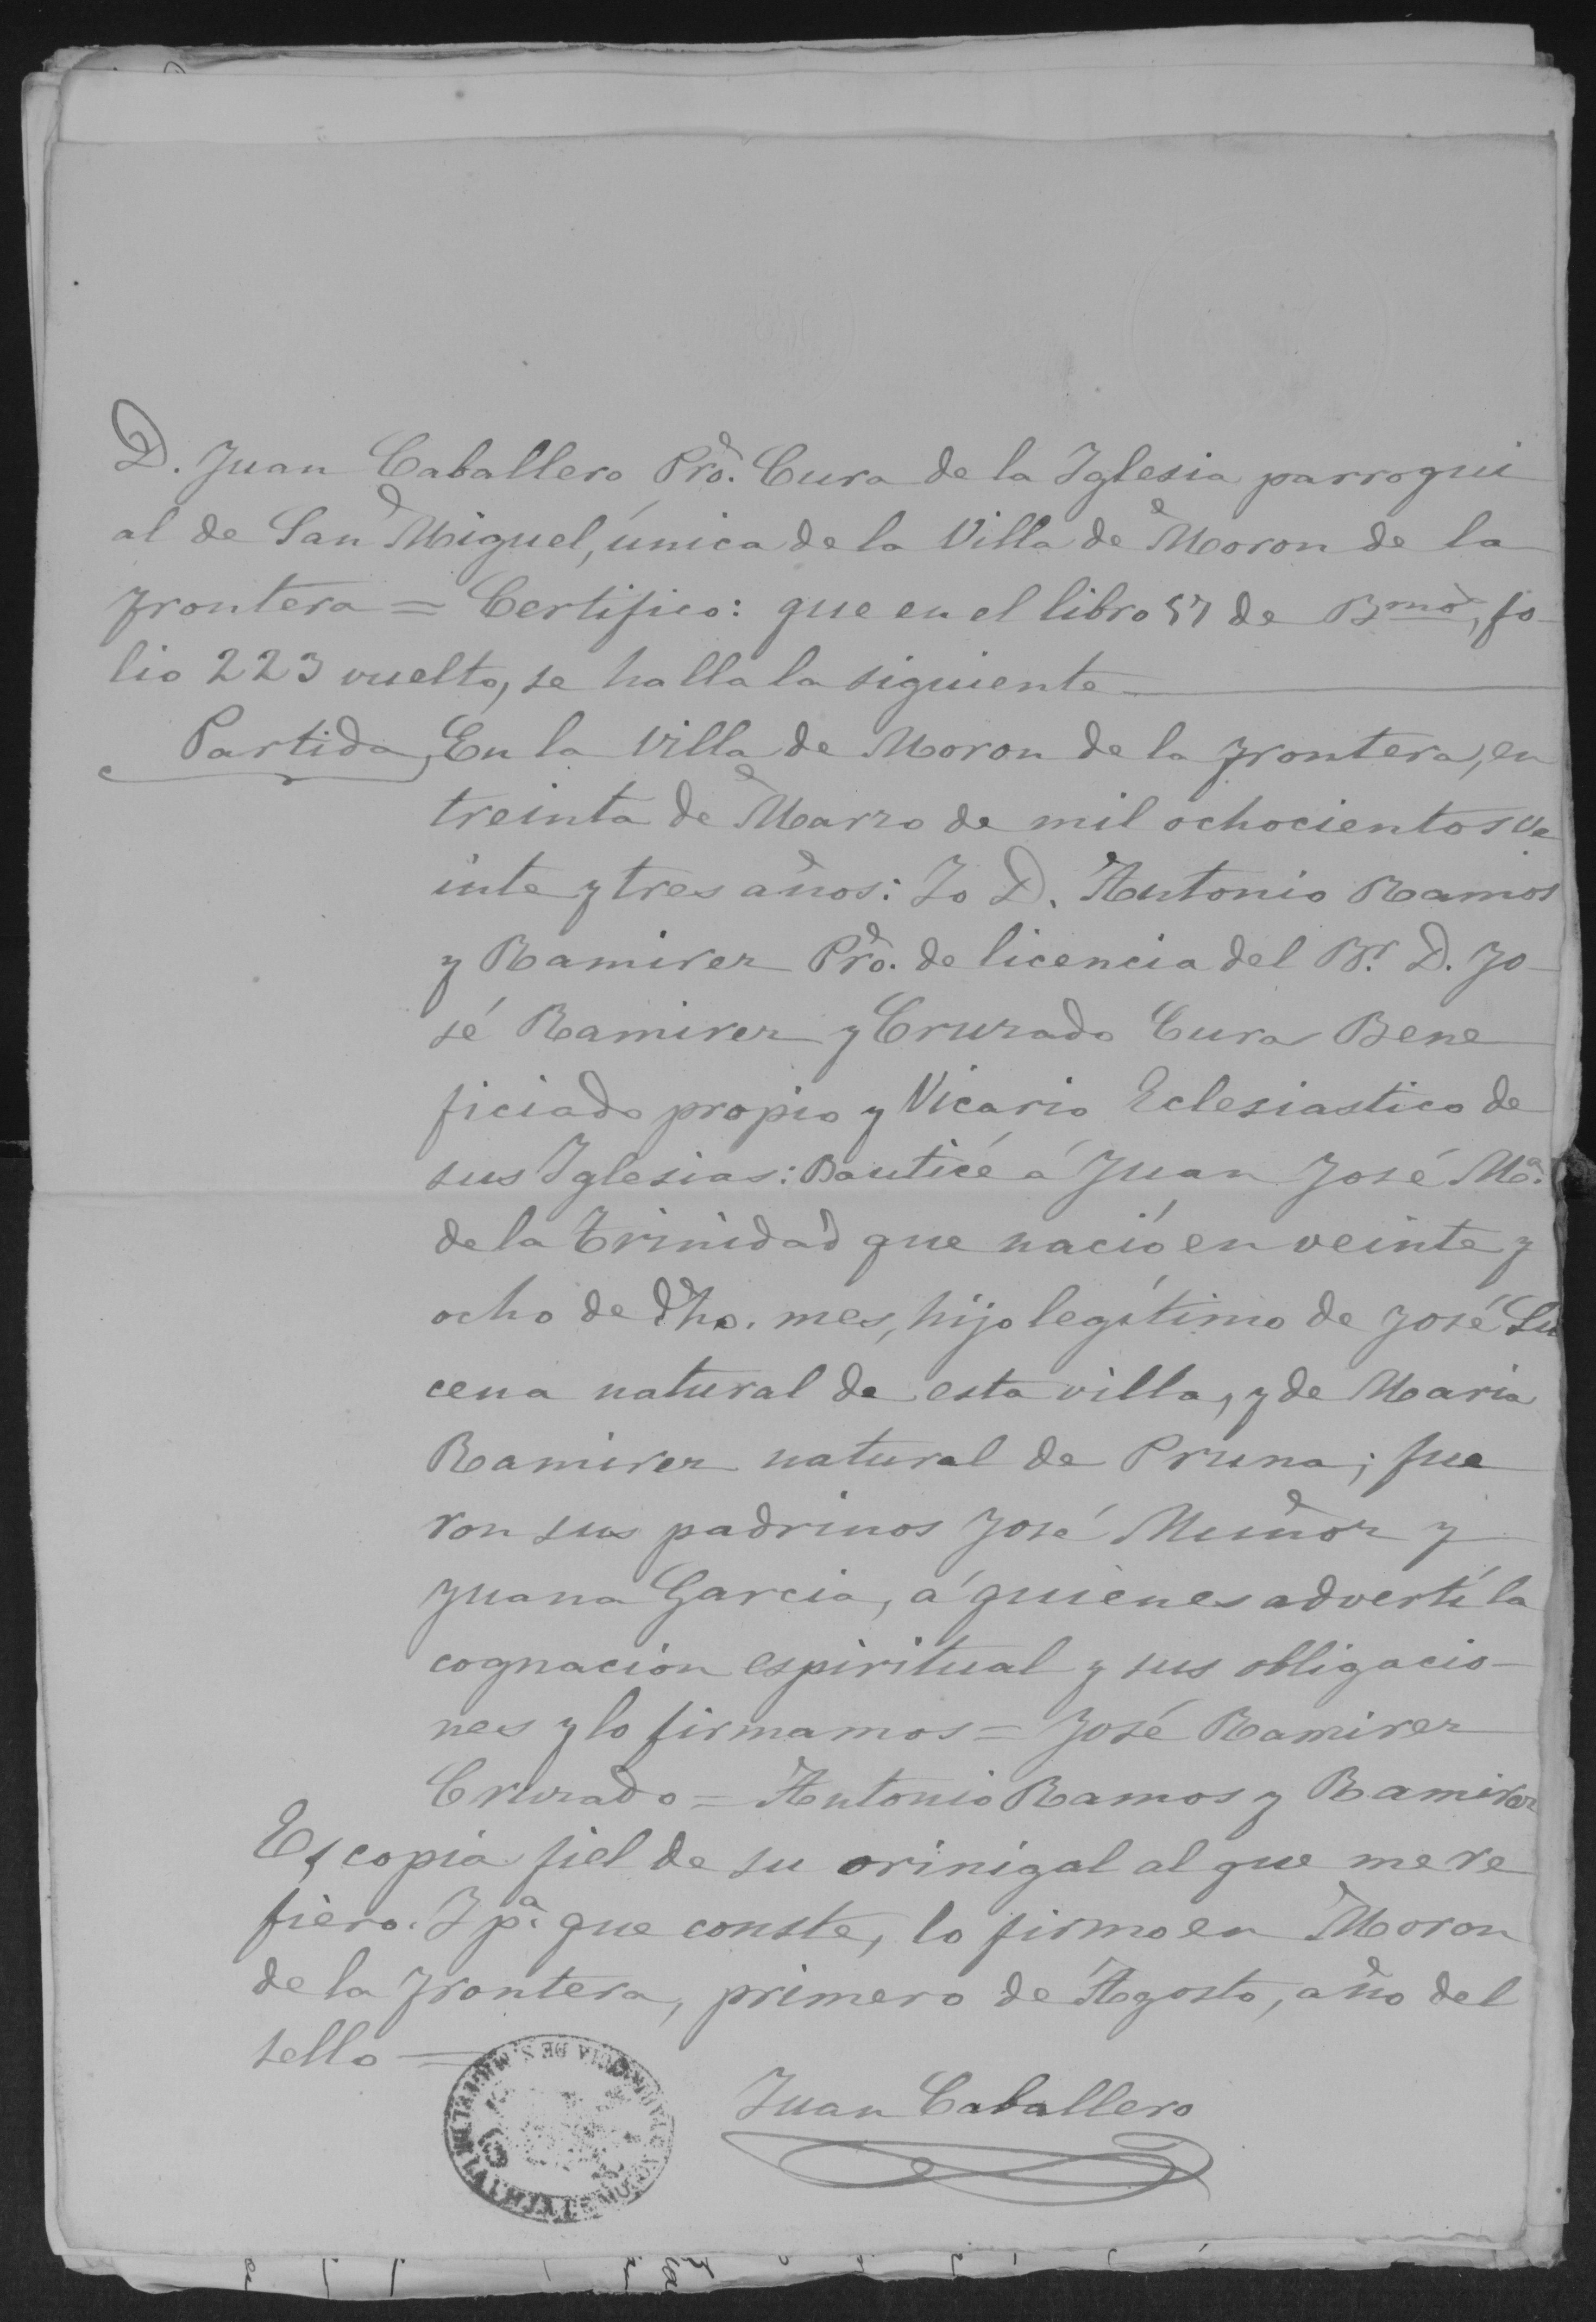 D. Juan Caballero Pro. Cura de la Iglesia parroqui
al de San Miguel, única de la Villa de Moron de la
frontera = Certifico: que en el libro 57 de Bmos, fo-
lio 223 vuelto, se halla la siguiente
Partida, En la Villa de Moron de la frontera, en
treinta de Marzo de mil ochocientos ve
inte y tres años: Yo D. Antonio Ramos
y Ramirez Pro. de licencia del Br. D. Jo-
sé Ramirez y Cruzado Cura Bene
ficiado propio y Vicario Eclesiastico de
sus Iglesias: Bauticé á Juan José Ma.
de la Trinidad que nació en veinte y
ocho de dho. mes, hijo legítimo de José Lu
cena natural de esta villa, y de Maria
Ramirez natural de Pruna; fue
ron sus padrinos José Muñoz y
Juana Garcia, á quienes advertí la
cognacion espiritual y sus obligacio-
nes y lo firmamos = José Ramirez
Cruzado = Antonio Ramos y Ramirez
Es copia fiel de su orinigal al que me re
fiero. Y pa. que conste, lo firmo en Moron
de la frontera, primero de Agosto, año del
sello =
Juan Caballero